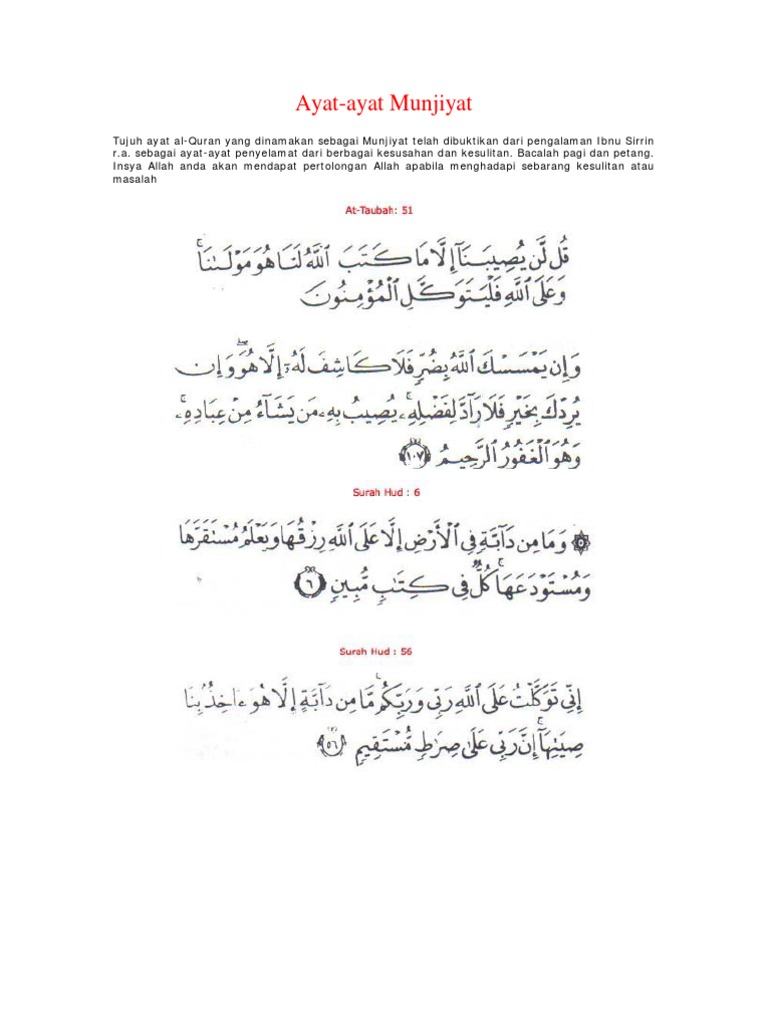 Ayat-ayat Munjiyat
Tujuh ayat al-Quran yang dinamakan sebagai Munjiyat telah dibuktikan dari pengalaman Ibnu Sirrin
r.a. sebagai ayat-ayat penyelamat dari berbagai kesusahan dan kesulitan. Bacalah pagi dan petang.
Insya Allah anda akan mendapat pertolongan Allah apabila menghadapi sebarang kesulitan atau
masalah
At-Taubah: 51
قُل لَّن يُصِيبَنَآ إِلَّا مَا كَتَبَ ٱللَّهُ لَنَا هُوَ مَوْلَىٰنَا ۚ
وَعَلَى ٱللَّهِ فَلْيَتَوَكَّلِ ٱلْمُؤْمِنُونَ
وَإِن يَمْسَسْكَ ٱللَّهُ بِضُرٍّ فَلَا كَاشِفَ لَهُۥٓ إِلَّا هُوَ ۖ وَإِن
يُرِدْكَ بِخَيْرٍ فَلَا رَآدَّ لِفَضْلِهِۦ ۚ يُصِيبُ بِهِۦ مَن يَشَآءُ مِنْ عِبَادِهِۦ ۚ
وَهُوَ ٱلْغَفُورُ ٱلرَّحِيمُ ١٠٧
Surah Hud : 6
۞ وَمَا مِن دَآبَّةٍ فِى ٱلْأَرْضِ إِلَّا عَلَى ٱللَّهِ رِزْقُهَا وَيَعْلَمُ مُسْتَقَرَّهَا
وَمُسْتَوْدَعَهَا ۚ كُلٌّ فِى كِتَٰبٍ مُّبِينٍ ٦
Surah Hud : 56
إِنِّى تَوَكَّلْتُ عَلَى ٱللَّهِ رَبِّى وَرَبِّكُم ۚ مَّا مِن دَآبَّةٍ إِلَّا هُوَ ءَاخِذٌۢ بِنَا
صِيَتِهَآ ۚ إِنَّ رَبِّى عَلَىٰ صِرَٰطٍ مُّسْتَقِيمٍ ٥٦